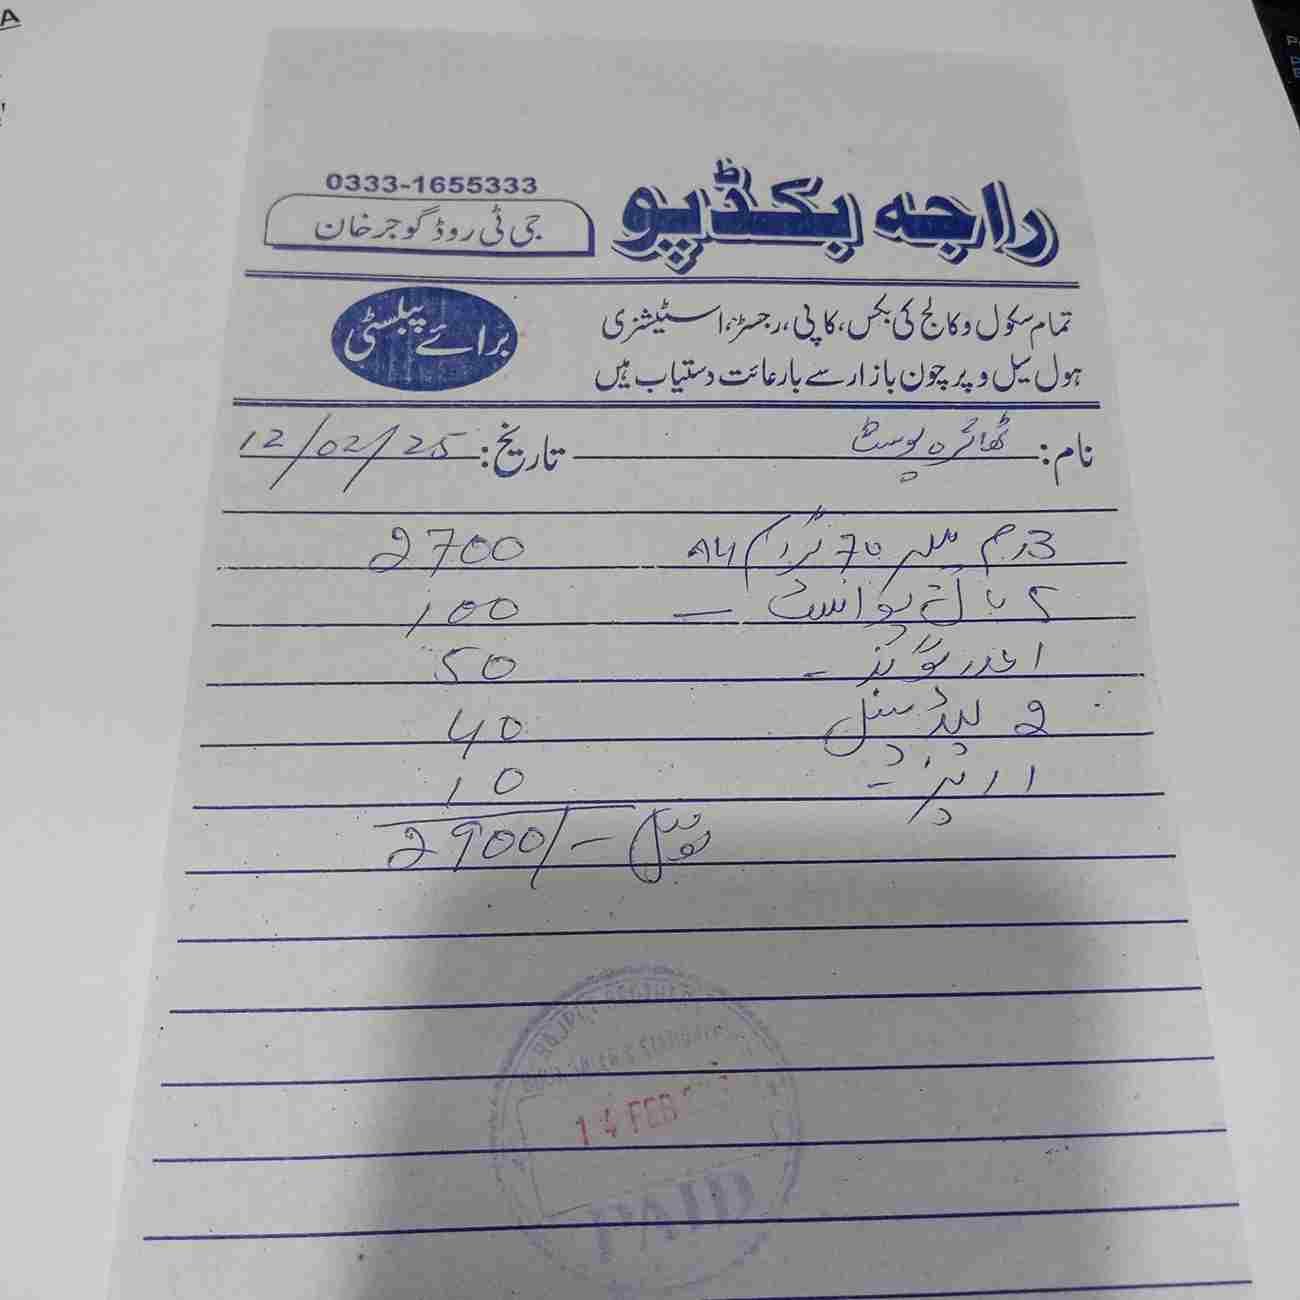 راجہ بکڈپو
0333-1655333
جی ٹی روڈ گوجر خان
تمام سکول و کالج کی بکس، کاپی، رجسٹر، اسٹیشنری
ہول سیل و پرچون بازار سے بارعائت دستیاب ہیں
برائے پبلسٹی
نام: پوسٹ تاریخ: 12/02/25
3 رم 70 گرام A4 2700
2 بال پوائنٹ - 100
1 50
2 لیڈ پنسل 40
1 ربڑ - 10
ٹوٹل 2900/-
14 FEB
PAID